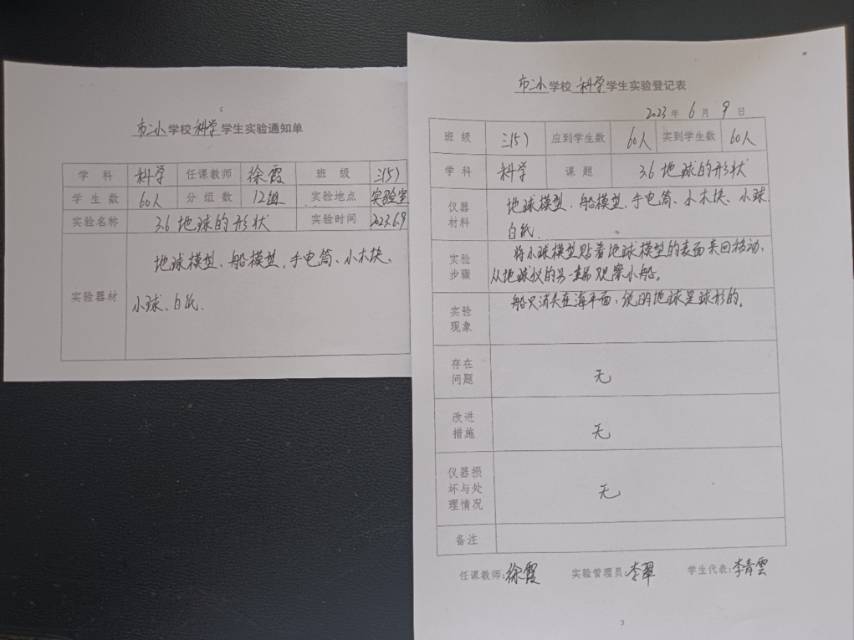 市二小学校科学学生实验通知单
学科 科学 任课教师 徐霞 班级 三(5)
学生数 60人 分组数 12组 实验地点 实验室
实验名称 3.6 地球的形状 实验时间 2023.6.9
地球模型、船模型、手电筒、小木块、
实验器材
小球、白纸.
市二小学校科学学生实验登记表
2023年6月9日
班级 三(5) 应到学生数 60人 实到学生数 60人
学科 科学 课题 3.6 地球的形状
仪器材料 地球模型、船模型、手电筒、小木块、小球
白纸.
实验步骤 将小球模型贴着地球模型的表面来回移动,
从地球仪的另一端观察小船。
实验现象 船只消失在海平面,说明地球是球形的。
存在问题 无
改进措施 无
仪器损坏与处理情况 无
备注
任课教师:徐霞 实验管理员:李翠 学生代表:李青雲
3